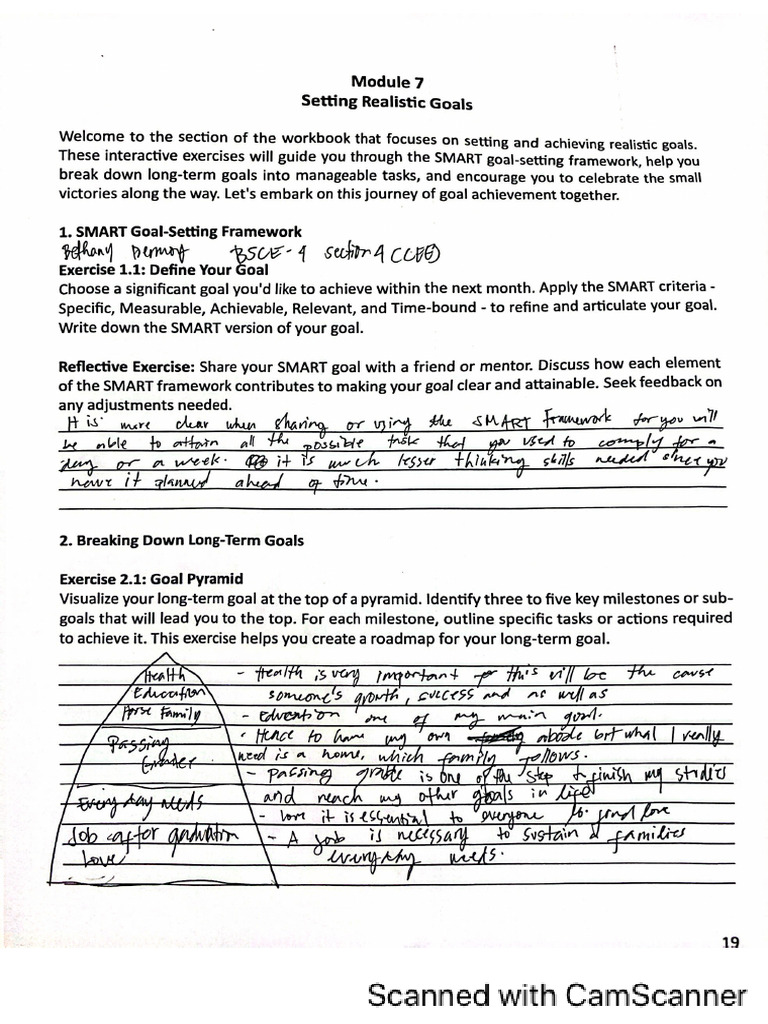 Module 7
Setting Realistic Goals
Welcome to the section of the workbook that focuses on setting and achieving realistic goals.
These interactive exercises will guide you through the SMART goal-setting framework, help you
break down long-term goals into manageable tasks, and encourage you to celebrate the small
victories along the way. Let's embark on this journey of goal achievement together.
1. SMART Goal-Setting Framework
Bethany BSCE-4 section 4 CCEE
Exercise 1.1: Define Your Goal
Choose a significant goal you'd like to achieve within the next month. Apply the SMART criteria -
Specific, Measurable, Achievable, Relevant, and Time-bound - to refine and articulate your goal.
Write down the SMART version of your goal.
Reflective Exercise: Share your SMART goal with a friend or mentor. Discuss how each element
of the SMART framework contributes to making your goal clear and attainable. Seek feedback on
any adjustments needed.
It is more clear when sharing or using the SMART Framework for you will
be able to attain all the possible task that you used to comply for a
day or a week. it is much lesser thinking skills needed since you
have it planned ahead of time.
2. Breaking Down Long-Term Goals
Exercise 2.1: Goal Pyramid
Visualize your long-term goal at the top of a pyramid. Identify three to five key milestones or sub-
goals that will lead you to the top. For each milestone, outline specific tasks or actions required
to achieve it. This exercise helps you create a roadmap for your long-term goal.
Health - Health is very important for this will be the cause
Education someone's growth, success and as well as
Family - Education one of my main goal.
Passing - Hence to have my own abode but what I really
need is a home, which family follows.
- passing grade is one of the step to finish my studies
Every day needs and reach my other goals in life
- love it is essential to everyone to find love
Job after graduation - A job is necessary to sustain a families
Love everyday needs.
19
Scanned with CamScanner